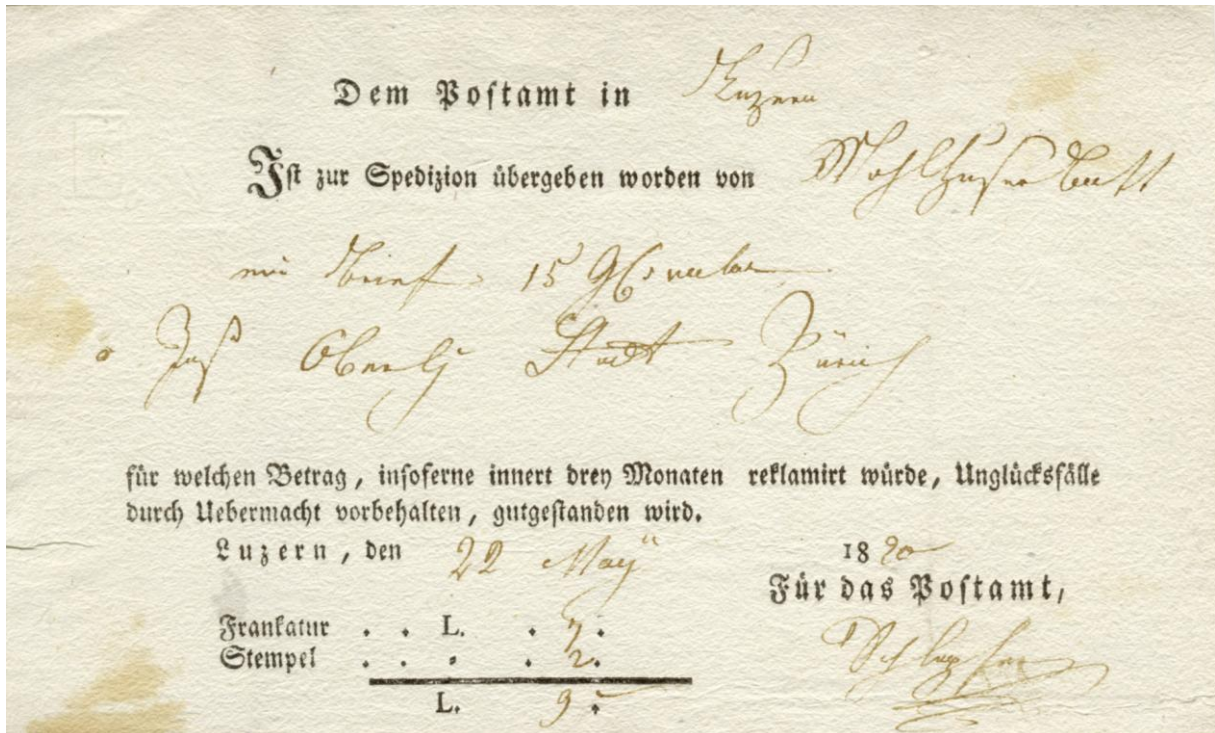 Dem Postamt in Luzern
Ist zur Spedizion übergeben worden von
Brief 15
Oberly Stadt Zürich
für welchen Betrag, insoferne innert drey Monaten reklamirt würde, Unglücksfälle
durch Uebermacht vorbehalten, gutgestanden wird.
Luzern, den 22 May 1820
Für das Postamt,
Frankatur . . L. . 7.
Stempel . . - . 2.
L. 9.